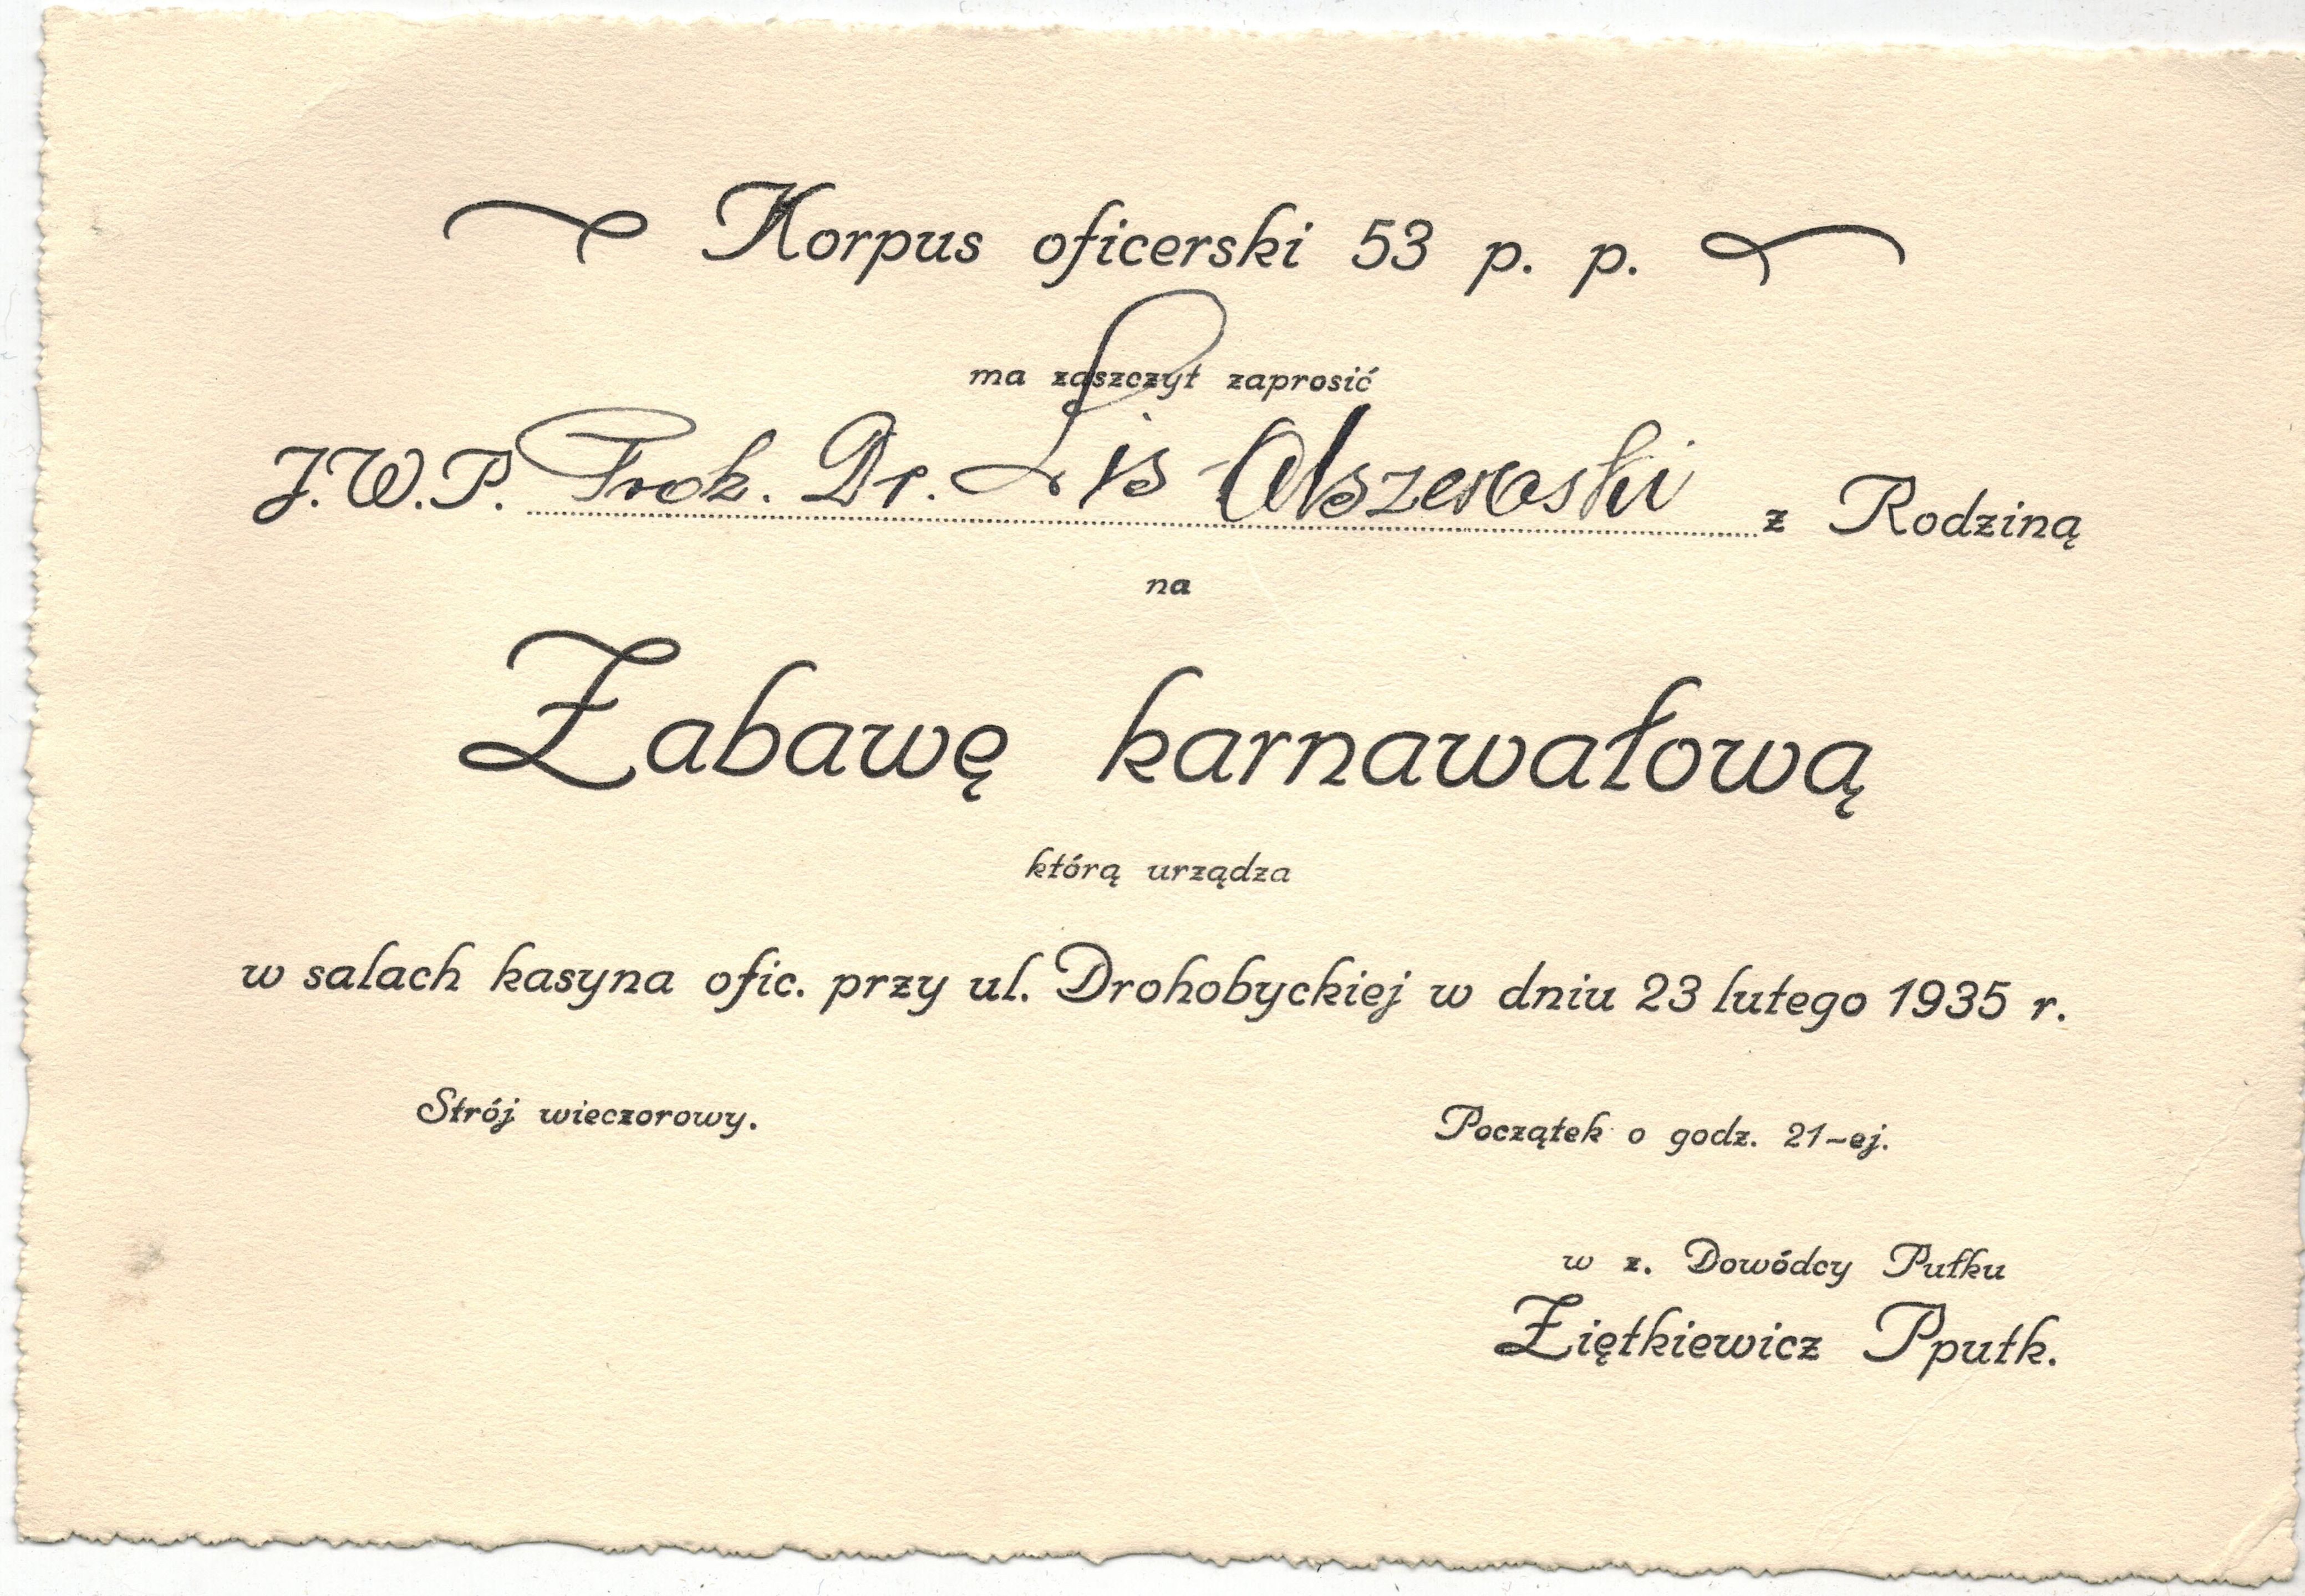 Korpus oficerski 53 p. p.
ma zaszczyt zaprosić
J.W.P. Prok. Dr. Lis-Olszewski z Rodziną
na
Zabawę karnawałową
którą urządza
w salach kasyna ofic. przy ul. Drohobyckiej w dniu 23 lutego 1935 r.
Strój wieczorowy. Początek o godz. 21-ej.
w z. Dowódcy Pułku
Ziętkiewicz Ppułk.